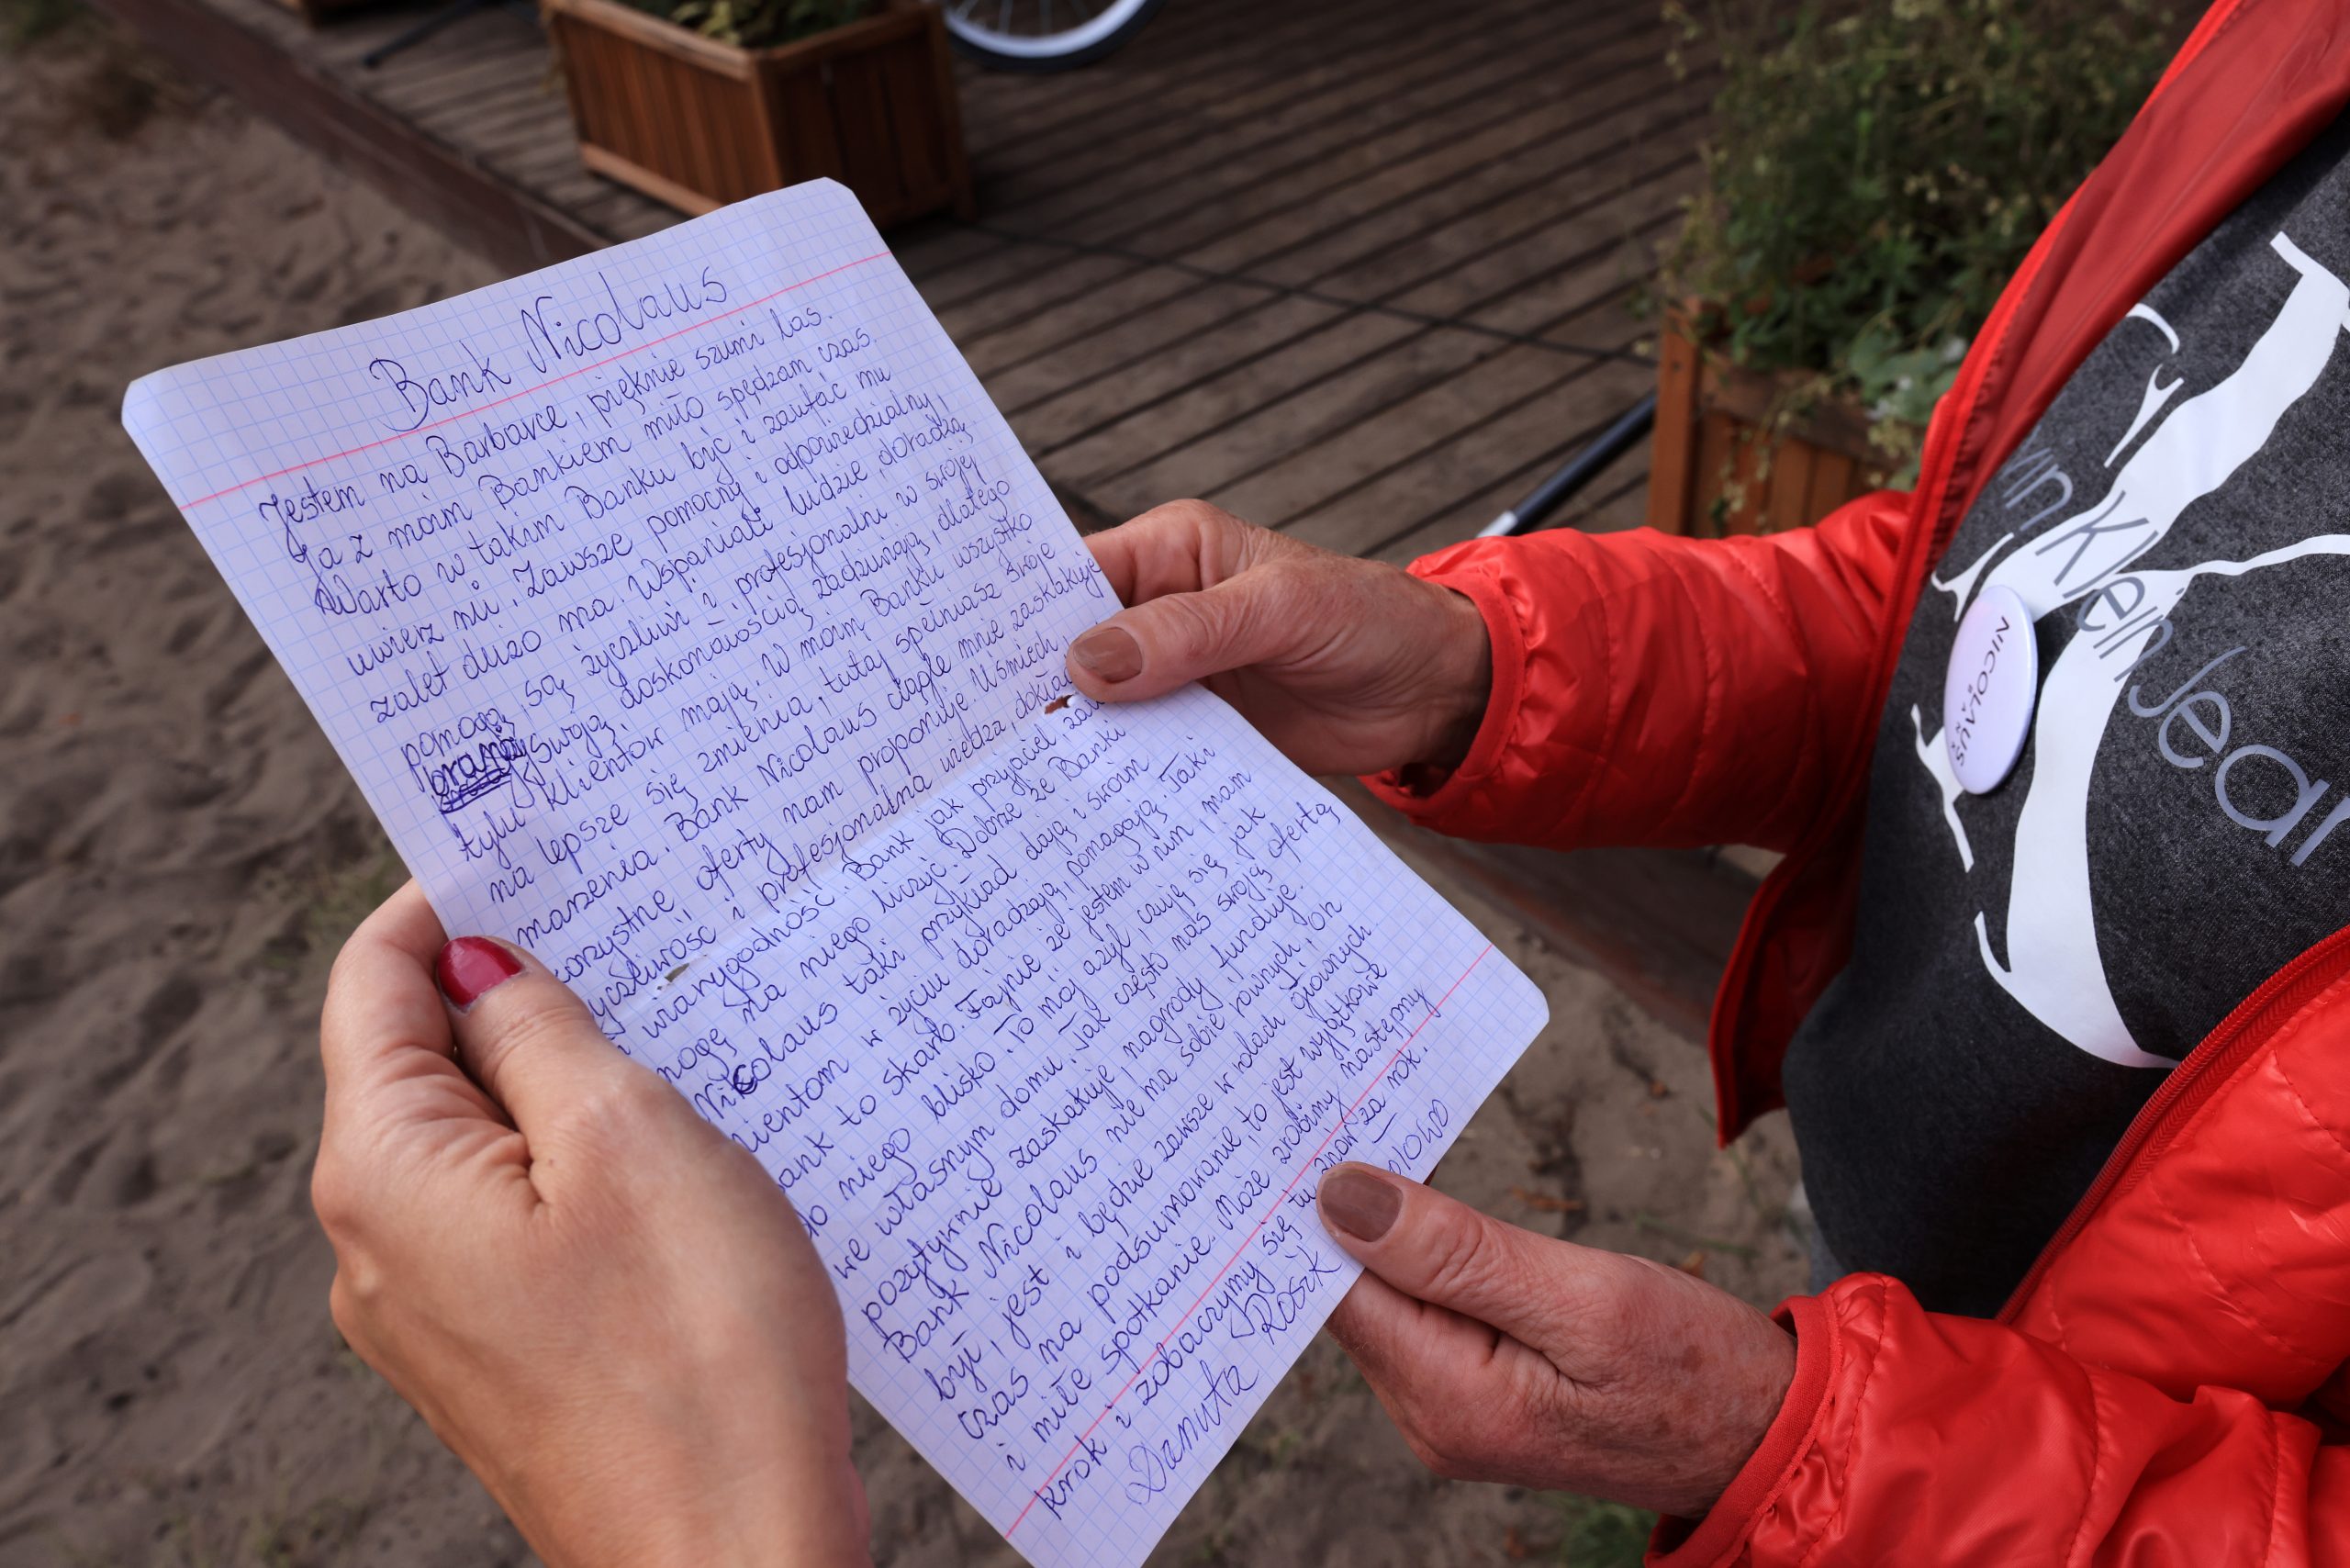 Bank Nicolaus
Jestem na Barbarce, pięknie szumi las.
Ja z moim Bankiem miło spędzam czas.
Warto w takim Banku być i zaufać mu
uwierz mi. Zawsze pomocny i odpowiedzialny,
zalet dużo ma. Wspaniali ludzie, doradzą
pomogą, są życzliwi i profesjonalni w swojej
branży, swoją doskonałością zadziwiają, dlatego
tylu klientów mają. W moim Banku wszystko
na lepsze się zmienia, tutaj spełniasz swoje
marzenia. Bank Nicolaus ciągle mnie zaskakuje
korzystne oferty nam proponuje. Uśmiech,
życzliwość i profesjonalna wiedza,
wiarygodność. Bank jak przyjaciel,
mogę na niego liczyć. Dobrze że Banki
Nicolaus taki przykład dają i swoim
klientom w życiu doradzają, pomagają. Taki
bank to skarb. Fajnie że jestem w nim, mam
do niego blisko. To mój azyl, czuję się jak
we własnym domu. Tak często nas swoją ofertą
pozytywnie zaskakuje, nagrody funduje.
Bank Nicolaus nie ma sobie równych, on
był, jest i będzie zawsze w rolach głównych.
Czas na podsumowanie, to jest wyjątkowe
i miłe spotkanie. Może zrobimy następny
krok i zobaczymy się tu znów za rok.
Danuta
NICOLAUS
Calvin Klein Jeans